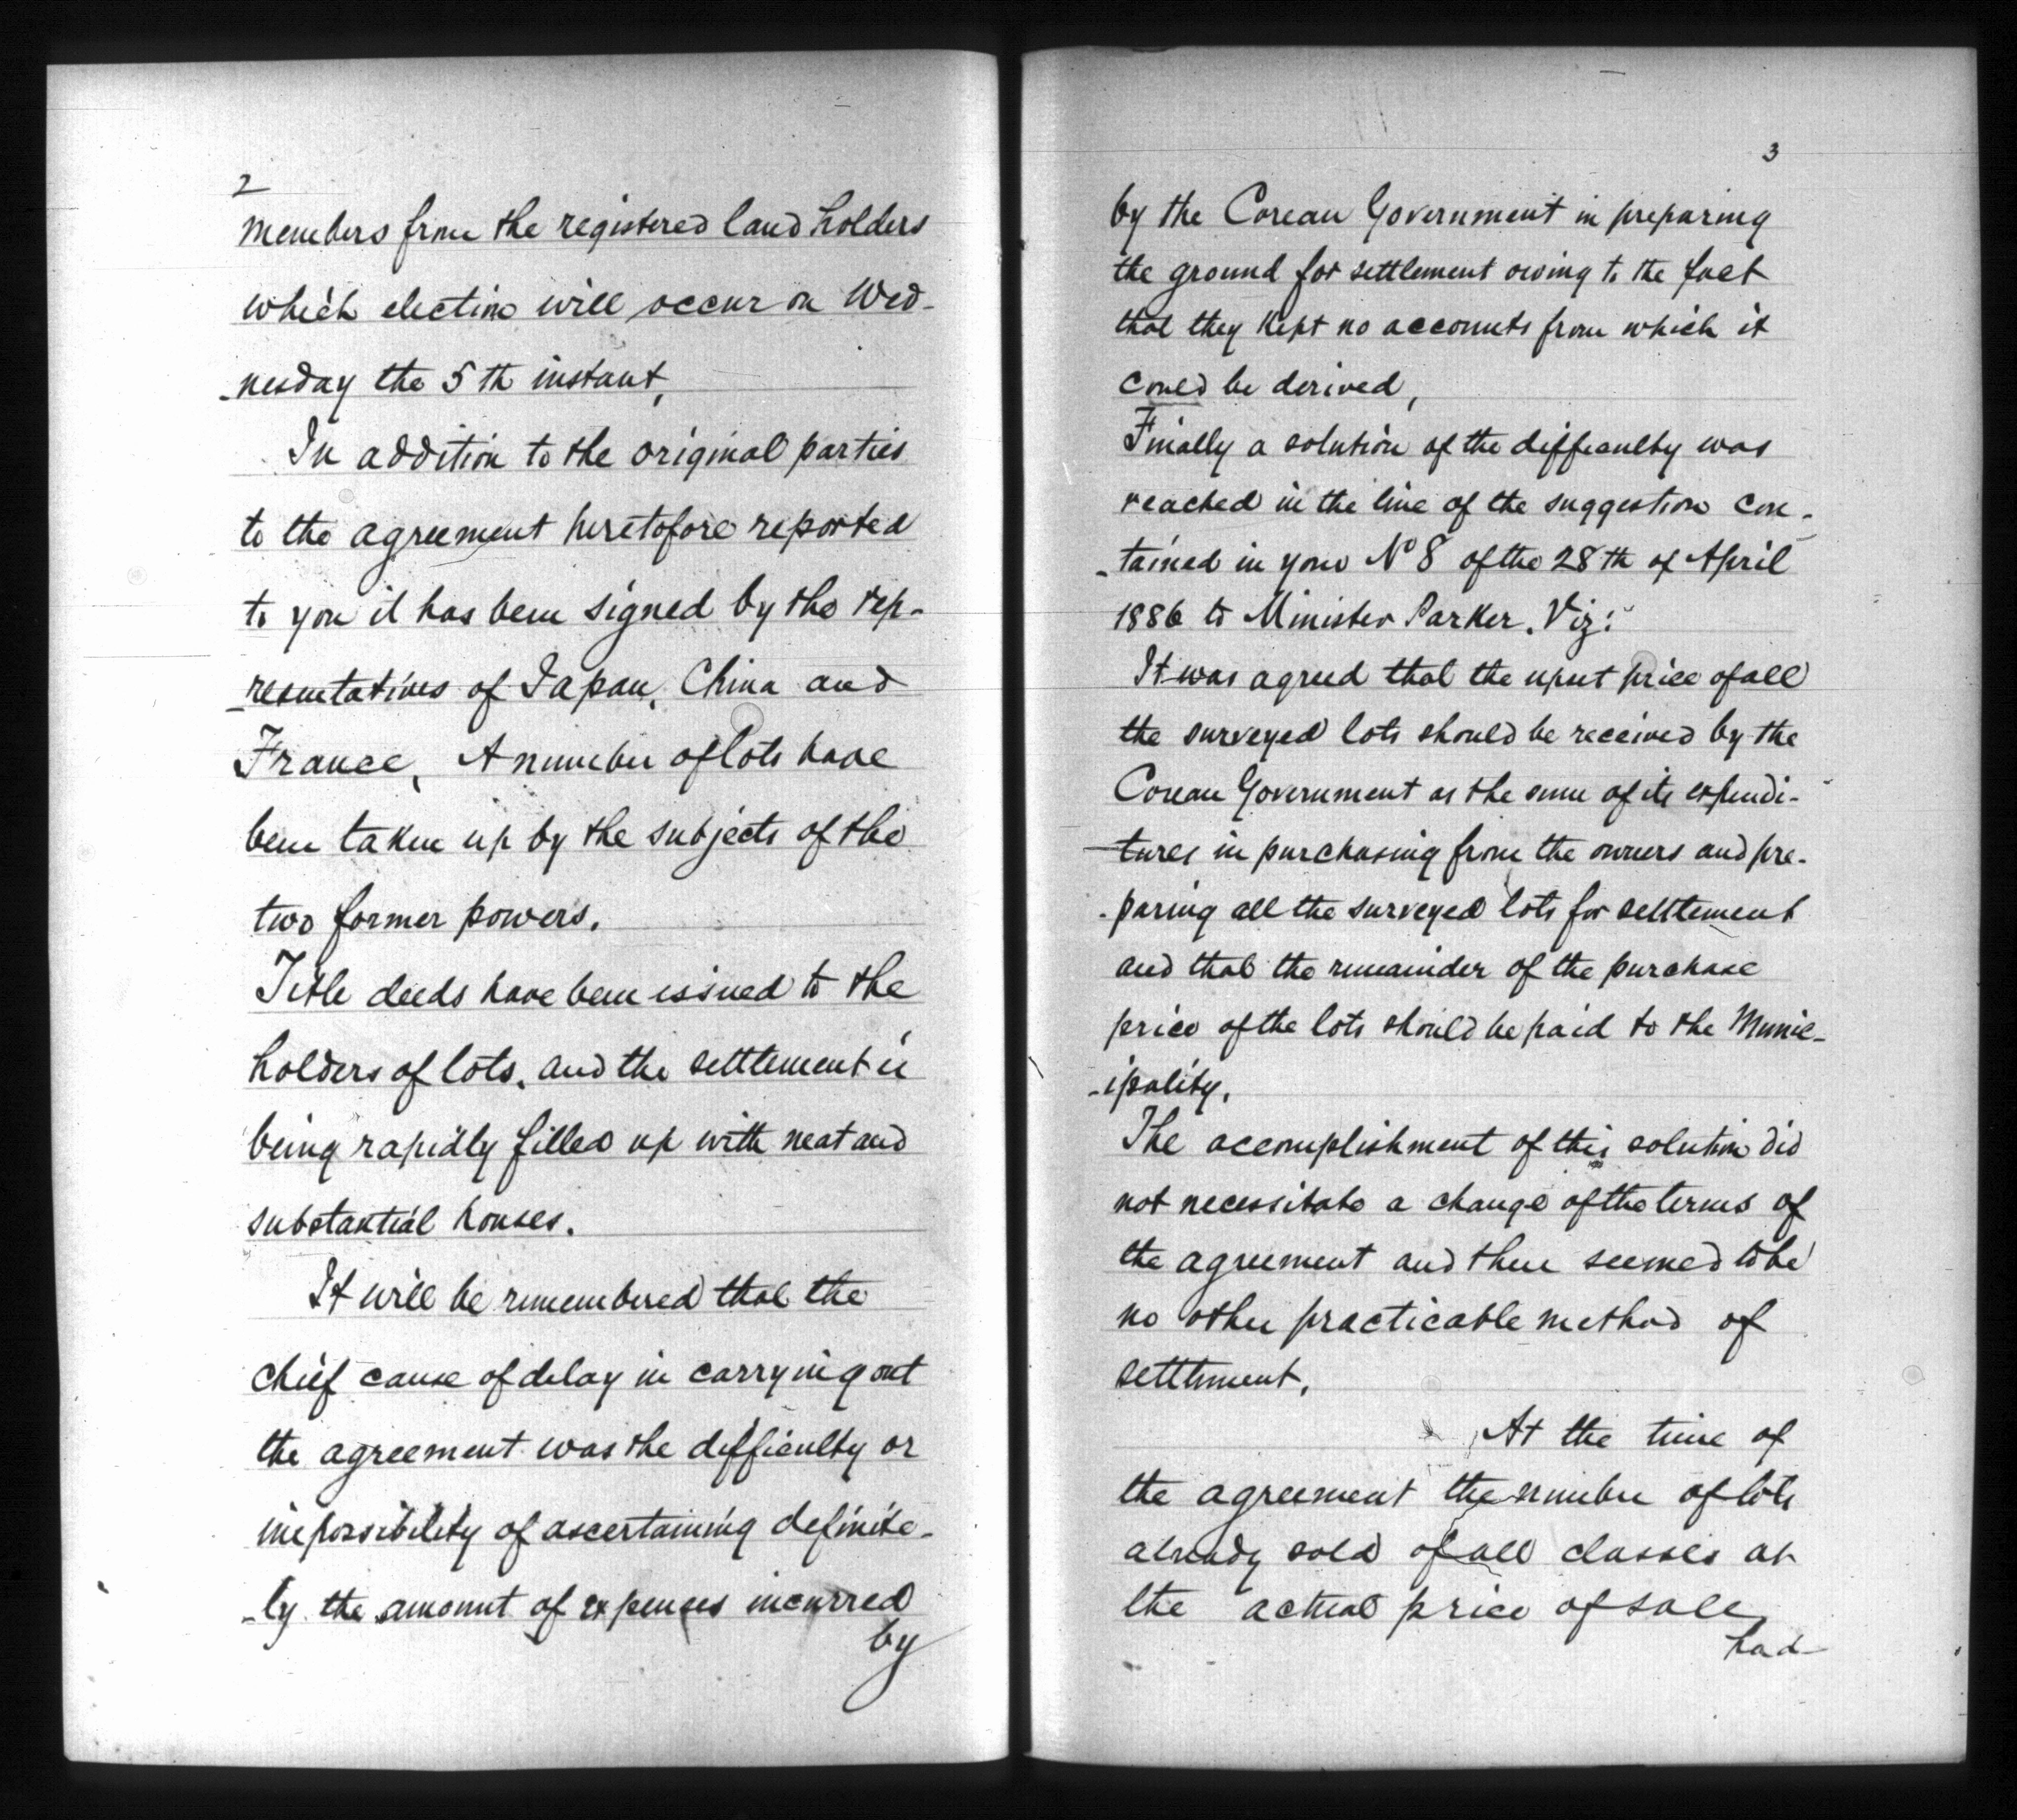 2
members from the registered land holders
which election will occur on Wed-
-nesday the 5th instant,
In addition to the original parties
to the agreement heretofore reported
to you it has been signed by the rep-
-resentatives of Japan, China and
France, A number of lots have
been taken up by the subjects of the
two former powers.
Title deeds have been issued to the
holders of lots, and the settlement is
being rapidly filled up with neat and
substantial houses.
It will be remembered that the
chief cause of delay in carrying out
the agreement was the difficulty or
impossibility of ascertaining definite-
-ly the amount of expenses incurred
by
3
by the Corean Government in preparing
the ground for settlement owing to the fact
that they kept no accounts from which it
could be derived,
Finally a solution of the difficulty was
reached in the line of the suggestion con-
-tained in your No 8 of the 28th of April
1886 to Minister Parker. Viz:
It was agreed that the upset price of all
the surveyed lots should be received by the
Corean Government as the sum of its expendi-
-tures in purchasing from the owners and pre-
-paring all the surveyed lots for settlement
and that the remainder of the purchase
price of the lots should be paid to the Munic-
-ipality.
The accomplishment of this solution did
not necessitate a change of the terms of
the agreement and there seemed to be
no other practicable method of
settlement.
At the time of
the agreement the number of lots
already sold of all classes at
the actual price of sale,
had